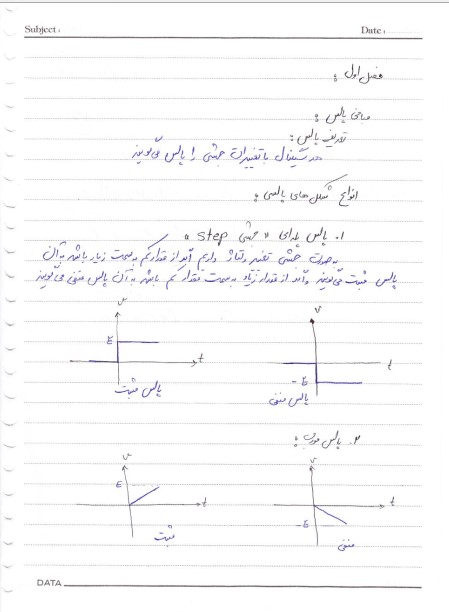 Subject :
Date :
فصل اول :
مباحث پالس :
تعریف پالس :
هر سیگنال با تغییرات جهشی را پالس می‌گویند
انواع شکل های پالسی :
۱. پالس پله‌ای « جهشی step »
به صورت جهشی تغییر ولتاژ داریم اگر از مقدار کم به سمت زیاد باشد به آن
پالس مثبت می‌گویند و اگر از مقدار زیاد به سمت مقدار کم باشد به آن پالس منفی می‌گویند
v
E
t
پالس مثبت
v
t
-E
پالس منفی
۲. پالس مورب :
v
E
t
مثبت
v
t
-E
منفی
DATA